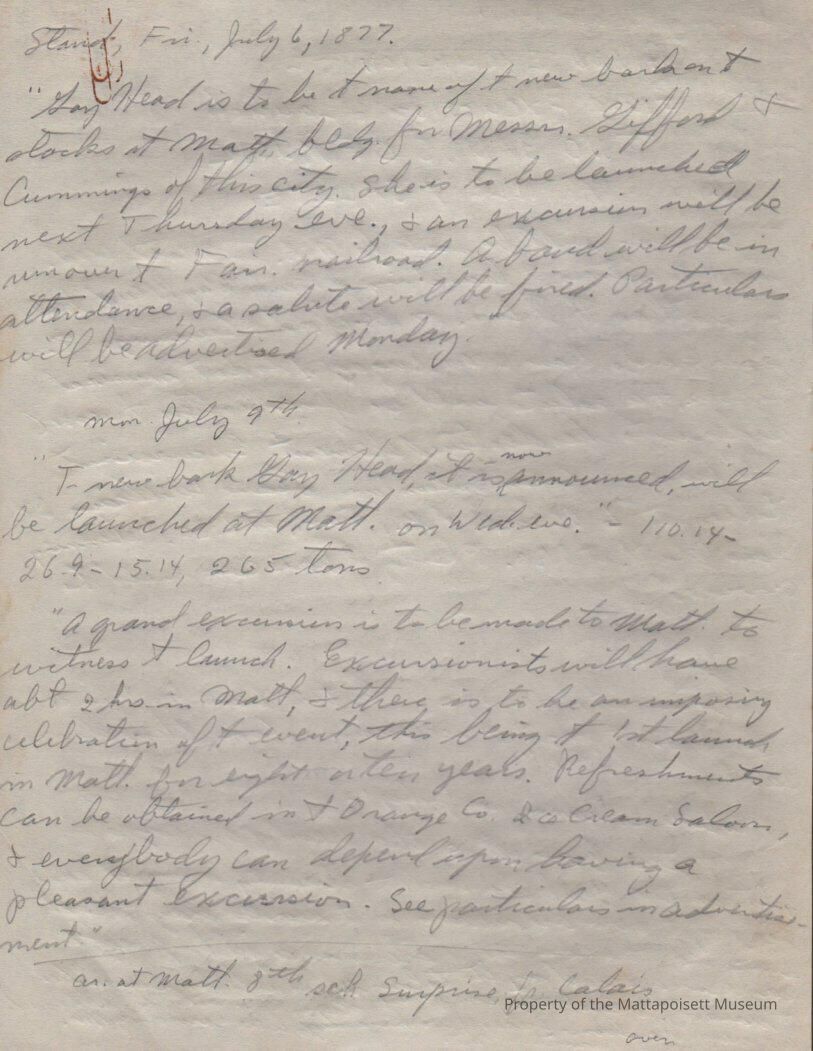 Stand, Fri., July 6, 1877.
"Gay Head is to be t name of t new bark on t
stocks at Matt. bldg. for Messrs. Gifford &
Cummings of this city. She is to be launched
next Thursday eve., & an excursion will be
run over t Fair. railroad. A band will be in
attendance, & a salute will be fired. Particulars
will be advertised Monday.
Mon. July 9th
"T new bark Gay Head, it is now announced, will
be launched at Matt. on Wed. eve." – 110.14–
26.9–15.14, 265 tons
"A grand excursion is to be made to Matt. to
witness t launch. Excursionists will have
abt 2 hrs. in Matt, & there is to be an imposing
celebration of t event, this being t 1st launch
in Matt. for eight or ten years. Refreshments
can be obtained in t Orange Co. Ice Cream Saloon,
& everybody can depend upon having a
pleasant excursion. See particulars in advertise-
ment"
ar. at Matt. 8th sch Surprise, fr. Calais
over
Property of the Mattapoisett Museum